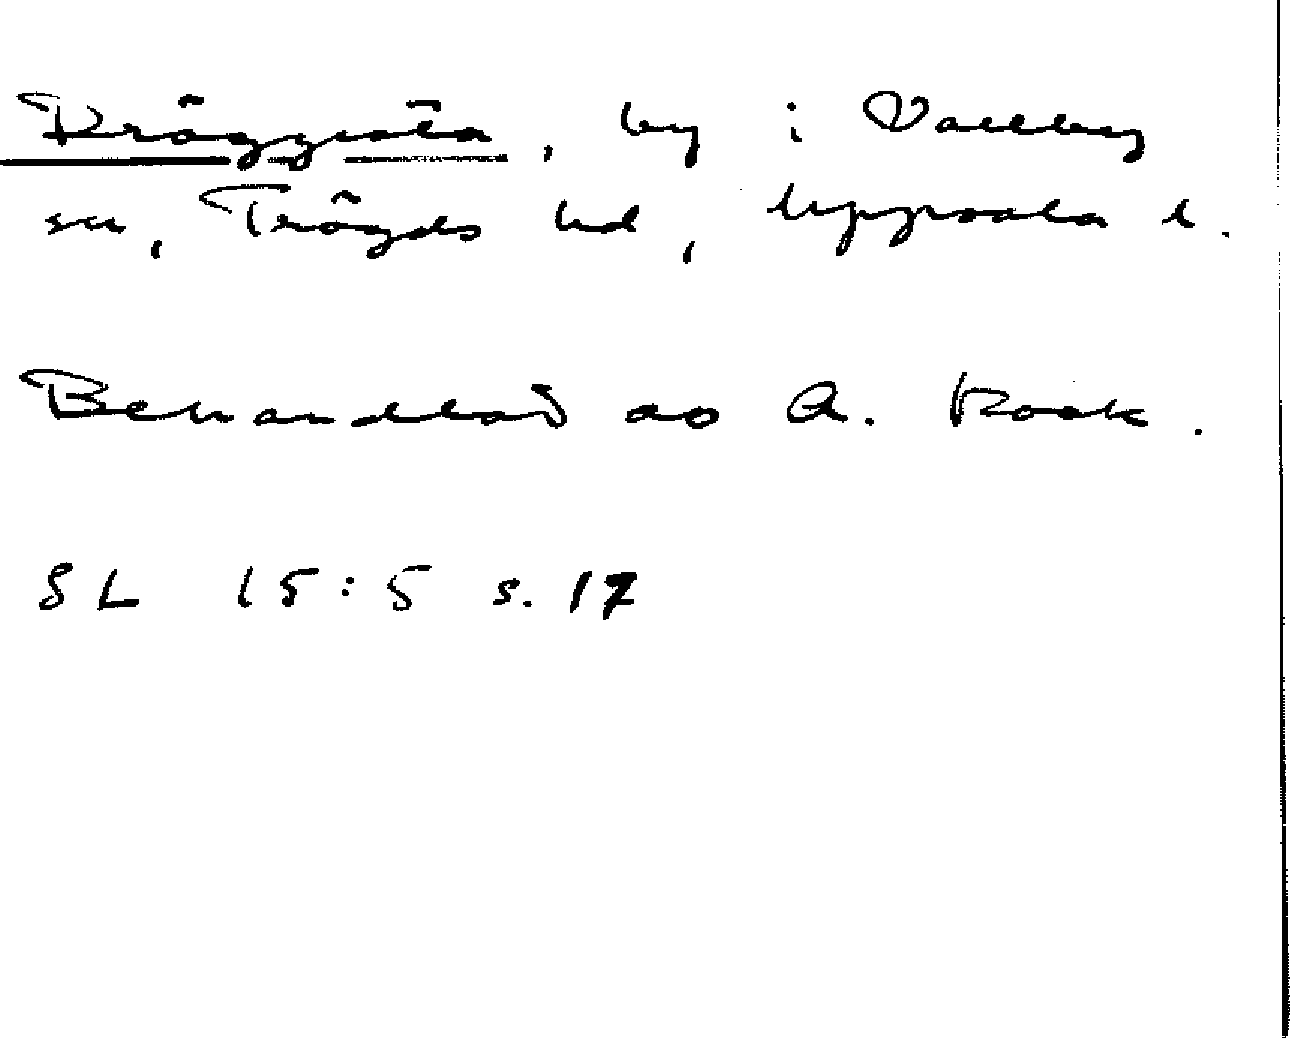 Dräggsta, by i Vallby
sn, Trögds hd, Uppsala l.
Behandlad av A. Kock.
SL 15:5 s. 17